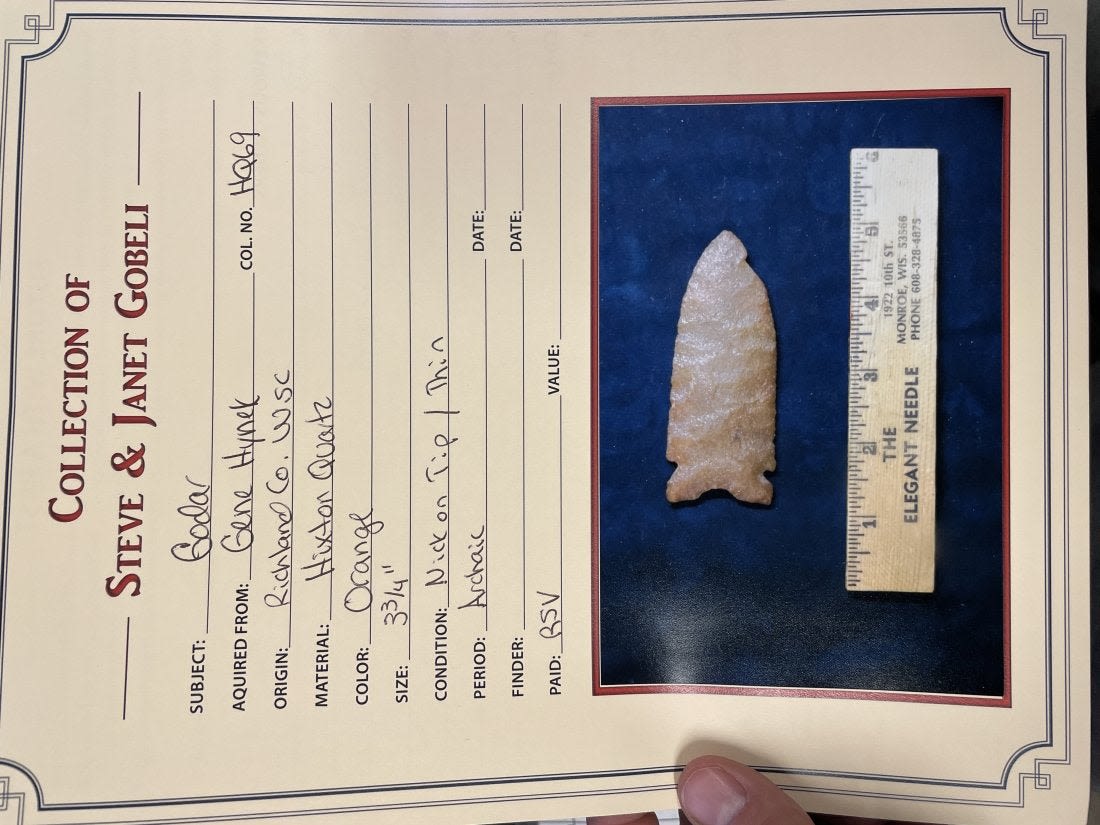 COLLECTION OF
STEVE & JANET GOBELI
SUBJECT: Godar
AQUIRED FROM: Gene Hynek COL. NO. HQ69
ORIGIN: Richland Co. WSC
MATERIAL: Hixton Quartz
COLOR: Orange
SIZE: 3 3/4"
CONDITION: Nick on Tip / Thin
PERIOD: Archaic DATE:
FINDER: DATE:
PAID: RSV VALUE:
1 2 3 4 5 6
THE
ELEGANT NEEDLE
1922 10th ST.
MONROE, WIS. 53566
PHONE 608-328-4875